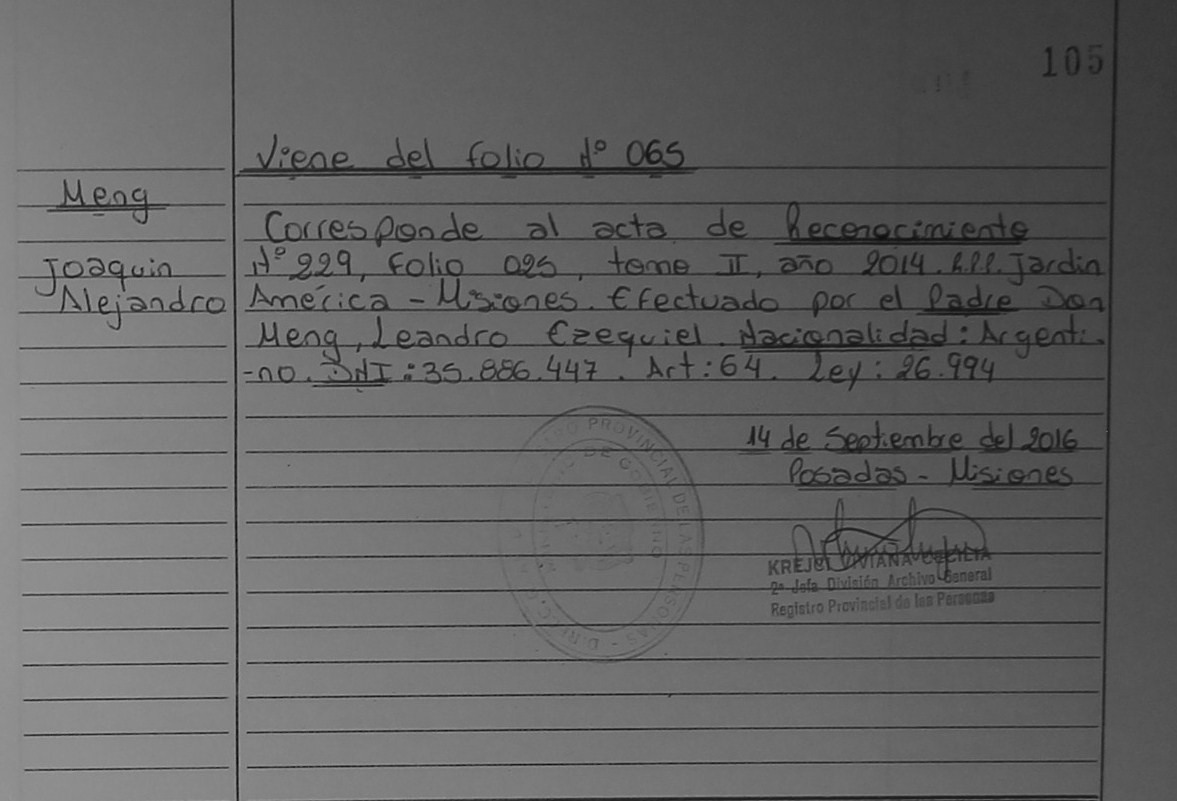 105
Viene del folio Nº 065
Meng
Joaquin
Alejandro
Corresponde al acta de Reconocimiento
Nº 229, Folio 025, tomo II, año 2014. R.P.P. Jardin
América - Misiones. Efectuado por el Padre Don
Meng, Leandro Ezequiel. Nacionalidad: Argenti-
-no. DNI: 35.886.447. Art: 64. Ley: 26.994
14 de Septiembre del 2016
Posadas - Misiones
PROVINCIAL DE LAS PERSONAS
DE GOBIERNO
VIVIANA
2º Jefa División Archivo General
Registro Provincial de las Personas